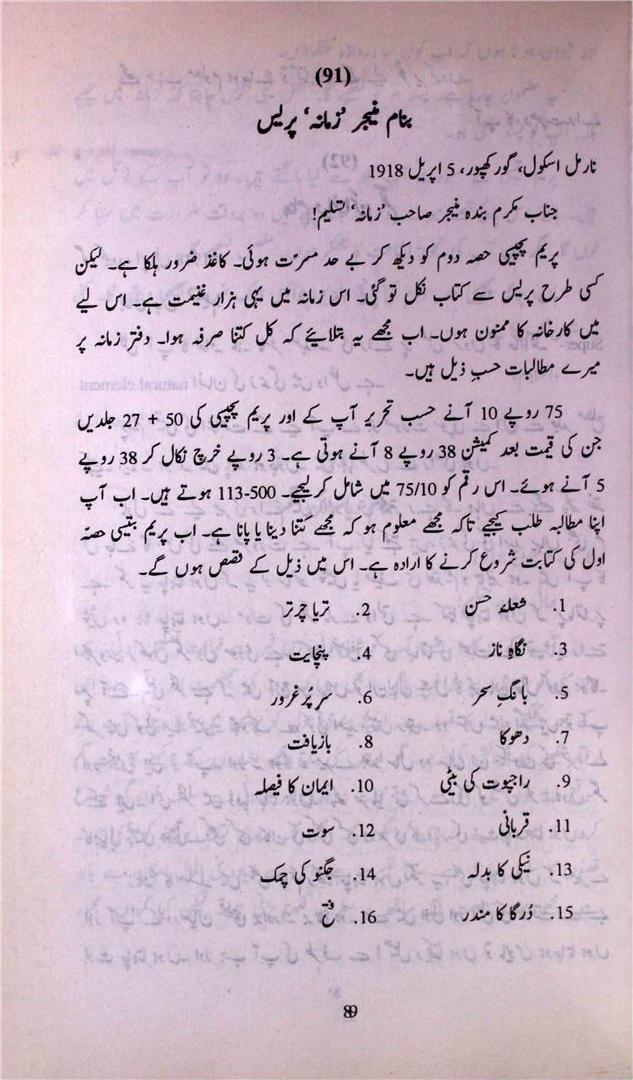 (91)
بنام منیجر ’زمانہ‘ پریس
نارمل اسکول، گورکھپور، 5 اپریل 1918
جناب مکرم بندہ منیجر صاحب ’زمانہ‘ تسلیم!
پریم پچیسی حصہ دوم کو دیکھ کر بے حد مسرّت ہوئی۔ کاغذ ضرور ہلکا ہے۔ لیکن
کسی طرح پریس سے کتاب نکل تو گئی۔ اس زمانہ میں یہی ہزار غنیمت ہے۔ اس لیے
میں کارخانہ کا ممنون ہوں۔ اب مجھے یہ بتلائیے کہ کل کتنا صرفہ ہوا۔ دفتر زمانہ پر
میرے مطالبات حسبِ ذیل ہیں۔
75 روپے 10 آنے حسب تحریر آپ کے اور پریم پچیسی کی 50 + 27 جلدیں
جن کی قیمت بعد کمیشن 38 روپے 8 آنے ہوتی ہے۔ 3 روپے خرچ نکال کر 38 روپے
5 آنے ہوئے۔ اس رقم کو 75/10 میں شامل کر لیجیے۔ 500-113 ہوتے ہیں۔ اب آپ
اپنا مطالبہ طلب کیجیے تاکہ مجھے معلوم ہو کہ مجھے کتنا دینا یا پانا ہے۔ اب پریم بتیسی حصّہ
اول کی کتابت شروع کرنے کا ارادہ ہے۔ اس میں ذیل کے قصص ہوں گے۔
1. شعلۂ حسن 2. تریا چرتر
3. نگاہِ ناز 4. پنچایت
5. بانگِ سحر 6. سرِ پُر غرور
7. دھوکا 8. بازیافت
9. راجپوت کی بیٹی 10. ایمان کا فیصلہ
11. قربانی 12. سوت
13. نیکی کا بدلہ 14. جگنو کی چمک
15. دُرگا کا مندر 16. فتح
89